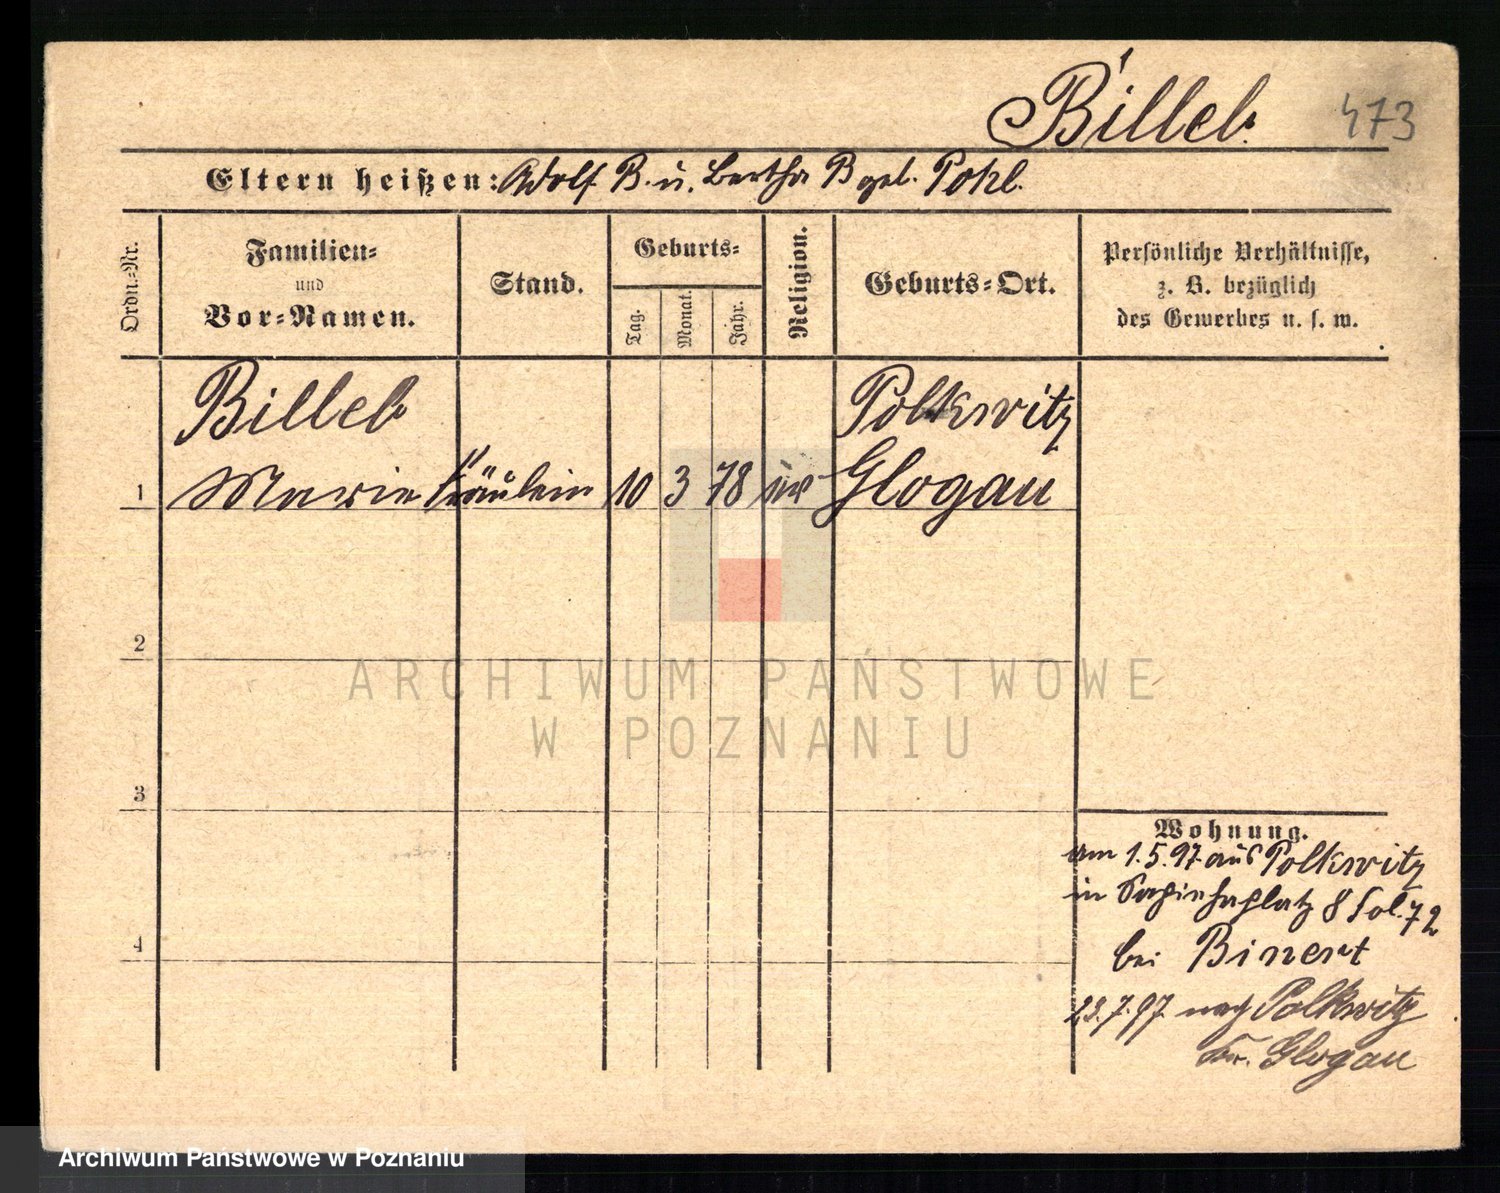 Billeb.
473
Eltern heißen: Adolf B. u. Bertha B geb. Pohl.
Ordn.-Nr.
Familien-
und
Vor-Namen.
Stand.
Geburts-
Tag.
Monat.
Jahr.
Religion.
Geburts-Ort.
Persönliche Verhältnisse,
z. B. bezüglich
des Gewerbes u. s. w.
Billeb Polkwitz
1 Marie Fräulein 10 3 78 Glogau
2
3
4
Wohnung.
am 1.5.97 aus Polkwitz
in Sapiehaplatz 8 fol. 72
bei Binert
23.7.97 nach Polkwitz
Kr. Glogau
ARCHIWUM PAŃSTWOWE
W POZNANIU
Archiwum Państwowe w Poznaniu